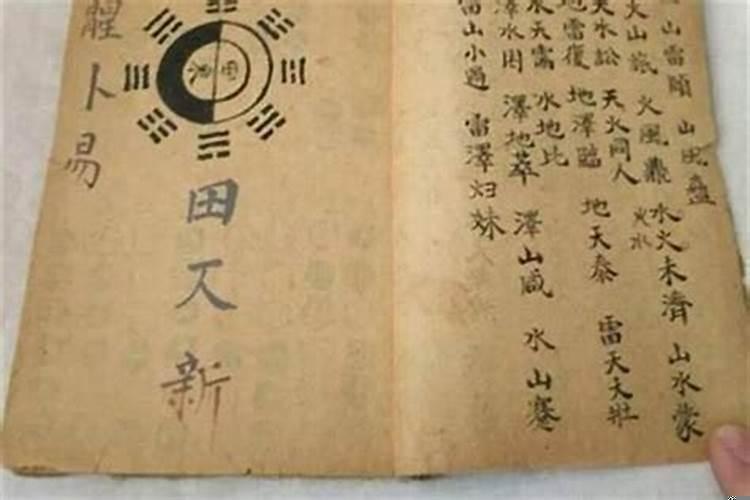 山雷頤
山風蠱
火山旅
火風鼎
火水
水火未濟
山水蒙
天水訟
天火同人
地雷復
地澤臨
地天泰
雷天大壯
水天需
水地比
澤水困
澤地萃
澤山咸
水山蹇
雷山小過
雷澤归妹
田又新
卜易